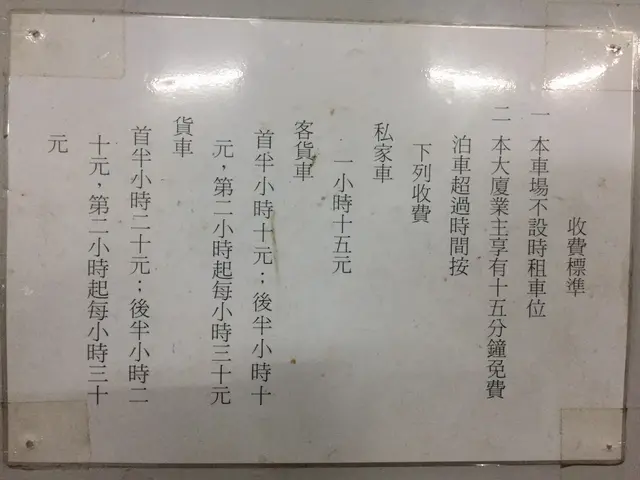 收費標準
一 本車場不設時租車位
二 本大廈業主享有十五分鐘免費
泊車超過時間按
下列收費
私家車
一小時十五元
客貨車
首半小時十元；後半小時十
元，第二小時起每小時三十元
貨車
首半小時二十元；後半小時二
十元，第二小時起每小時三十
元